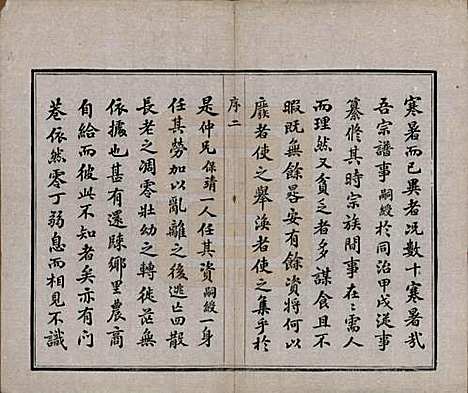 寒暑而已異者况數十寒暑哉
吾宗譜事嗣緞於同治甲戌從事
纂修其時宗族間事在在需人
而理然又貧乏者多謀食且不
暇既無餘晷安有餘資將何以
廢者使之舉渙者使之集乎於
序二
是仲兄保靖一人任其資嗣緞一身
任其勞加以亂離之後逃亡四散
長老之凋零壯幼之轉徙茫無
依據也甚有還賕鄉里農商
自給而彼此不知者矣亦有門
巷依然零丁弱息而相見不識